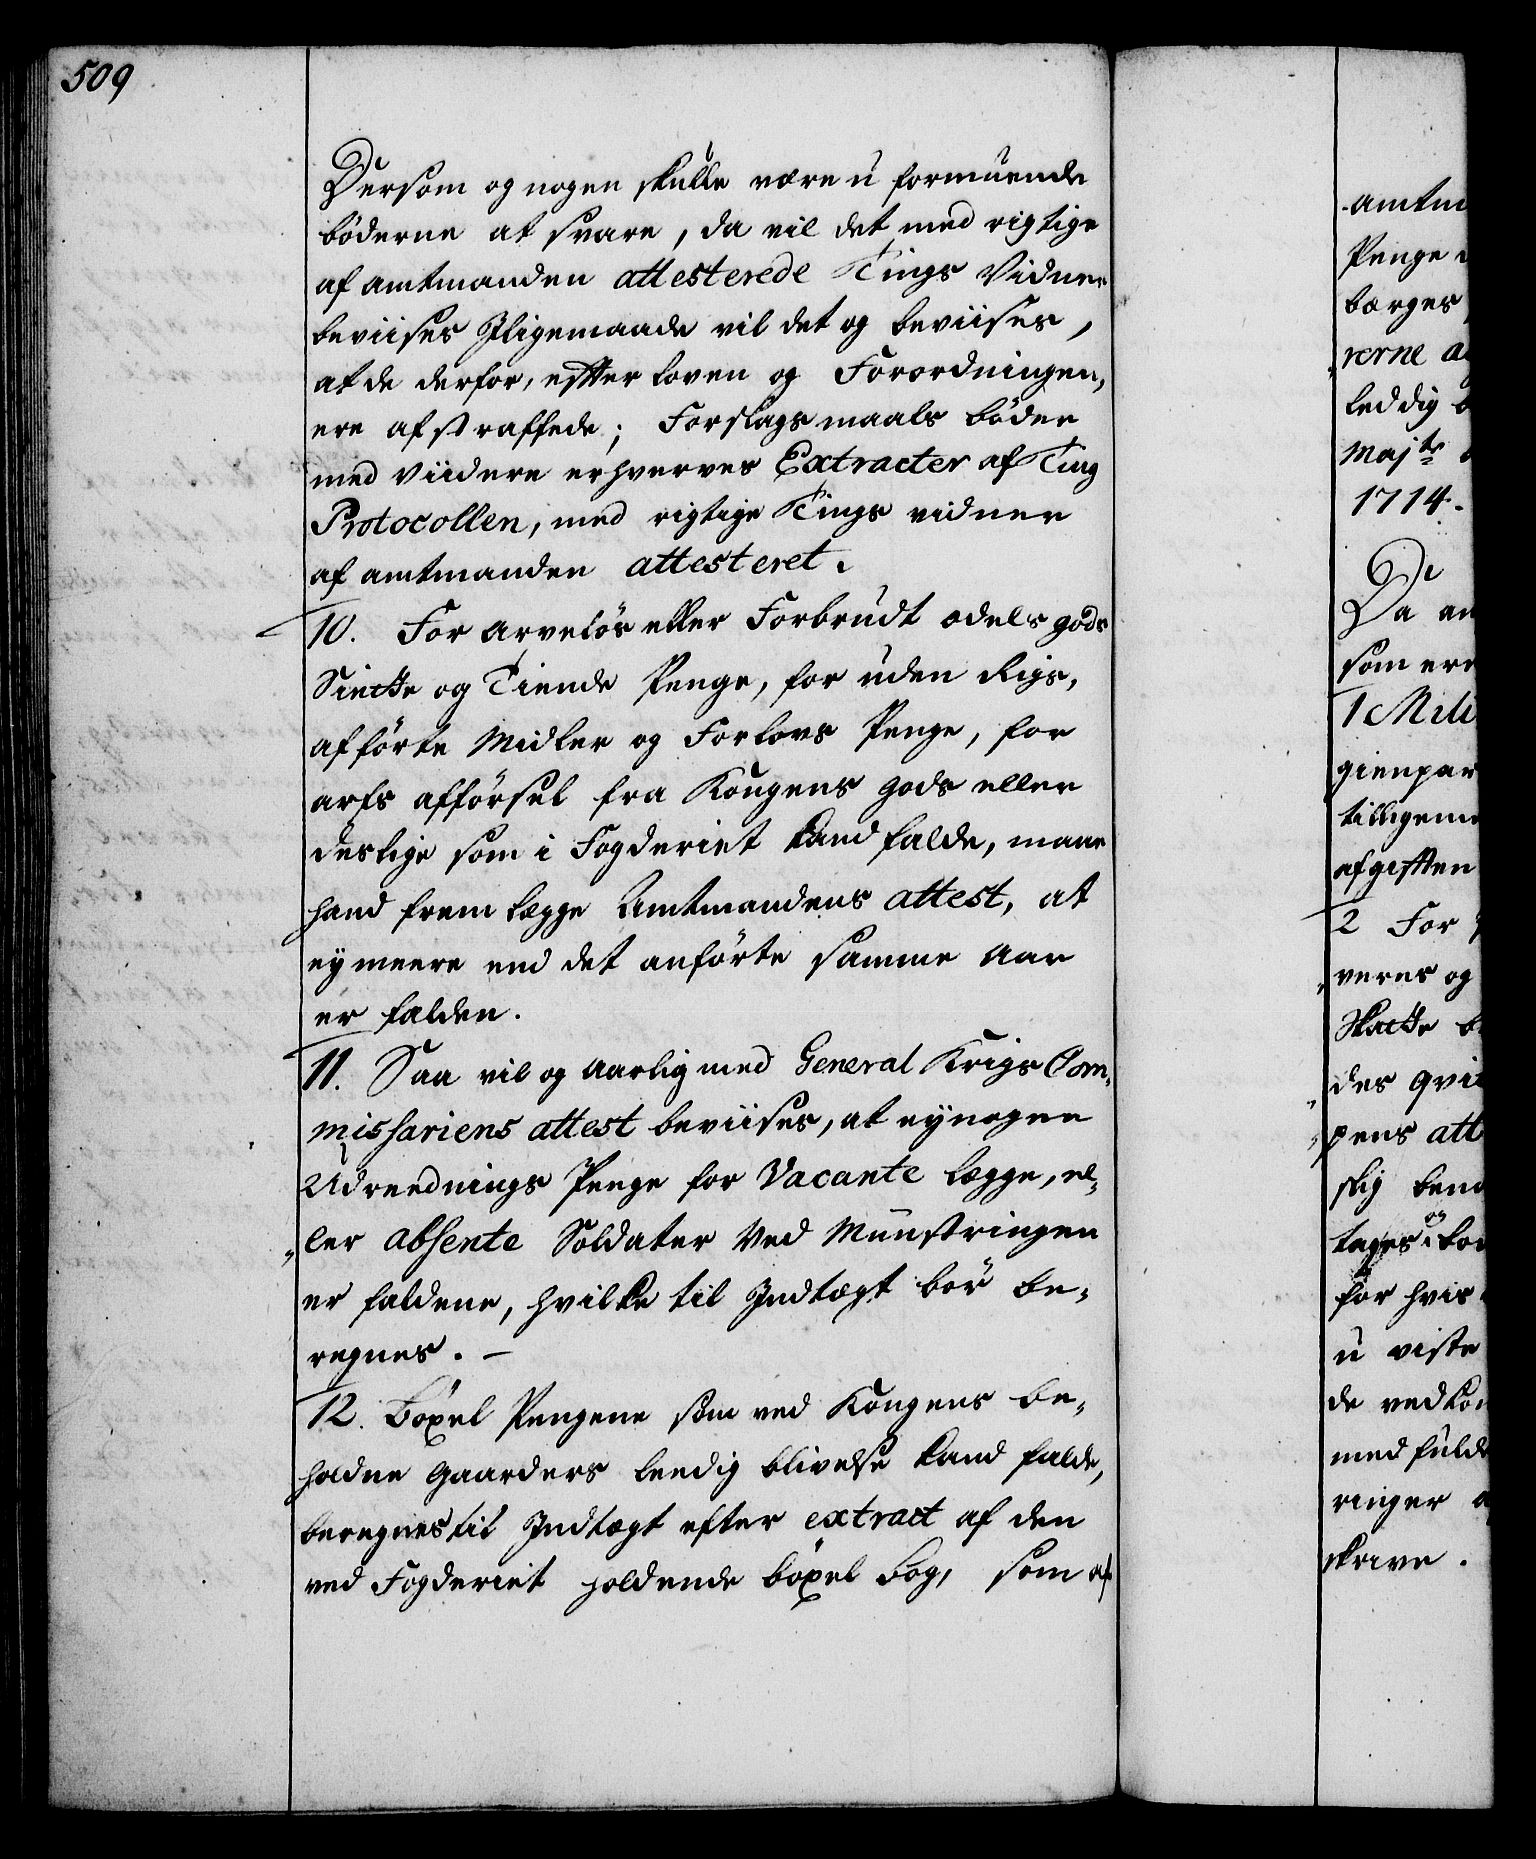 509
Dersom og nogen skulle være u formuende
böderne at svare, da vil det med rigtige
af amtmanden attesterede Tings Vidner
beviises Jligemaade vil det og beviises,
at de derfor, effter loven og Forordningen,
ere afstraffede; Forslags maals böder
med Viidere erhverves Extracter af Ting
Protocollen, med rigtige Tings vidner
af amtmanden attesteret.
10. For arvelös eller Forbrudt odels gods
Siette og Tiende Penge, for uden Rigs,
afförte Midler og Forlovs Penge, for
arfs afförsel fra Kongens gods eller
deslige som i Fogderiet kand falde, maae
hand frem legge Amtmandens attest, at
ey meere end det anförte samme aar
er falden.
11. Saa vil og aarlig med General Krigs Com-
missariens attest beviises, at ey nogen
Udreednings Penge for Vacante legge, el-
ler absente Soldater ved Münstringen
er faldene, hvilke til Indtægt bör be-
regnes. -
12. Böxel Pengene som ved Kongens be-
holdne Gaarders leedig blivelse kand falde,
beregnes til Indtægt efter extract af den
ved Fogderiet holdende böxel Bog, som af
amtm
Penge
borges
rerne a
leddig
Majts
1714.
Da an
som ere
1 Mili
gienpar
tilligeme
afgifften
2 For
veres og
Skatte b
des qvit
pens att
slig ben
tages og
for hvis
u viste
de vedkom
med fulde
ringer
skrive.